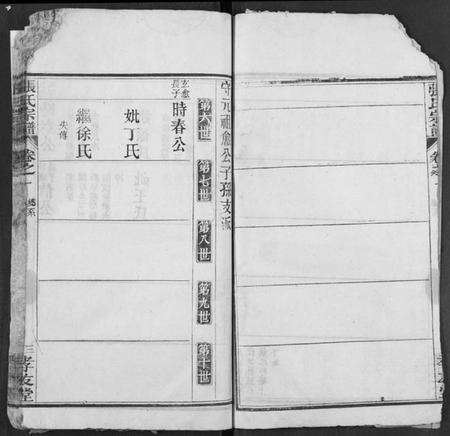 張氏宗譜
卷之一
孝友堂
守元禮愈公子孫支派
第六世
第七世
第八世
第九世
第十世
玄愈
長子
時春公
妣丁氏
繼徐氏
失傳
張氏宗譜
卷之一
孝友堂